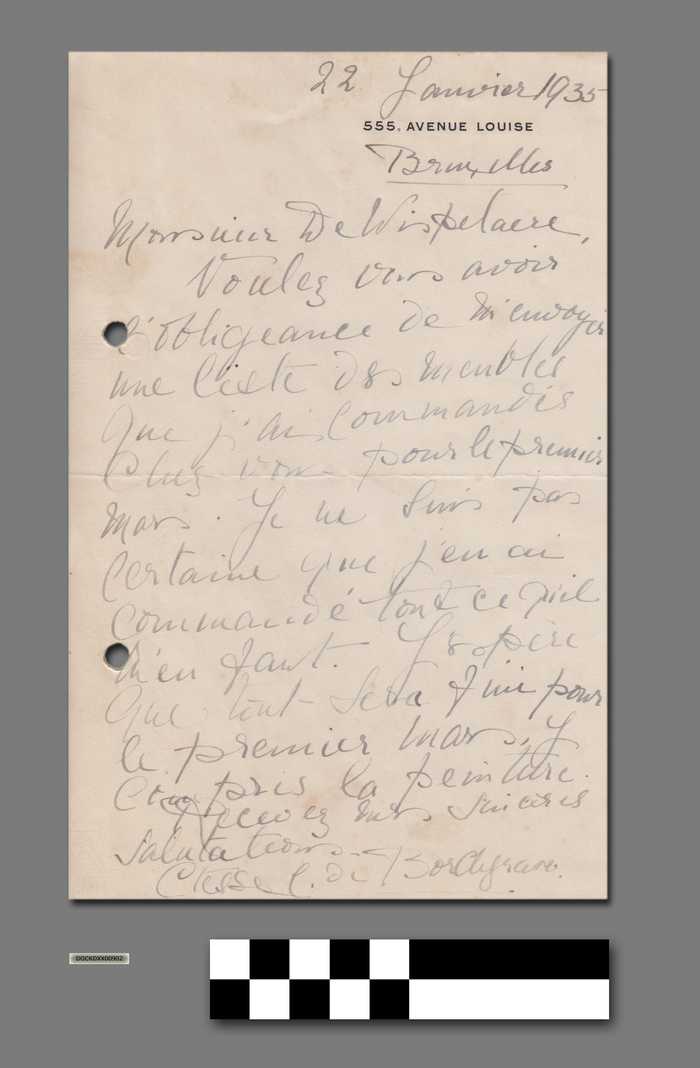 22 Janvier 1935
555, AVENUE LOUISE
Bruxelles
Monsieur De Wispelaere,
Voulez vous avoir
l'obligeance de m'envoyer
une liste des meubles
que j'ai commandés
chez vous pour le premier
mars. Je ne suis pas
certaine que j'en ai
commandé tout ce qu'il
m'en faut. J'espère
que tout sera fini pour
le premier mars, y
compris la peinture.
Recevez mes sincères
salutations.
Ctesse C. de Borchgrave.
DOCKDXX00902